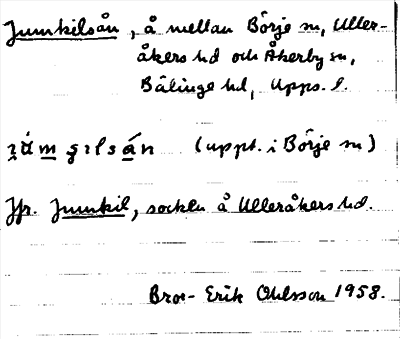 Jumkilsån, å mellan Börje sn, Uller-
åkers hd och Åkerby sn,
Bälinge hd, Upps. l.
(uppt. i Börje sn)
Jfr. Jumkil, socken å Ulleråkers hd.
Bror-Erik Ohlsson 1958.